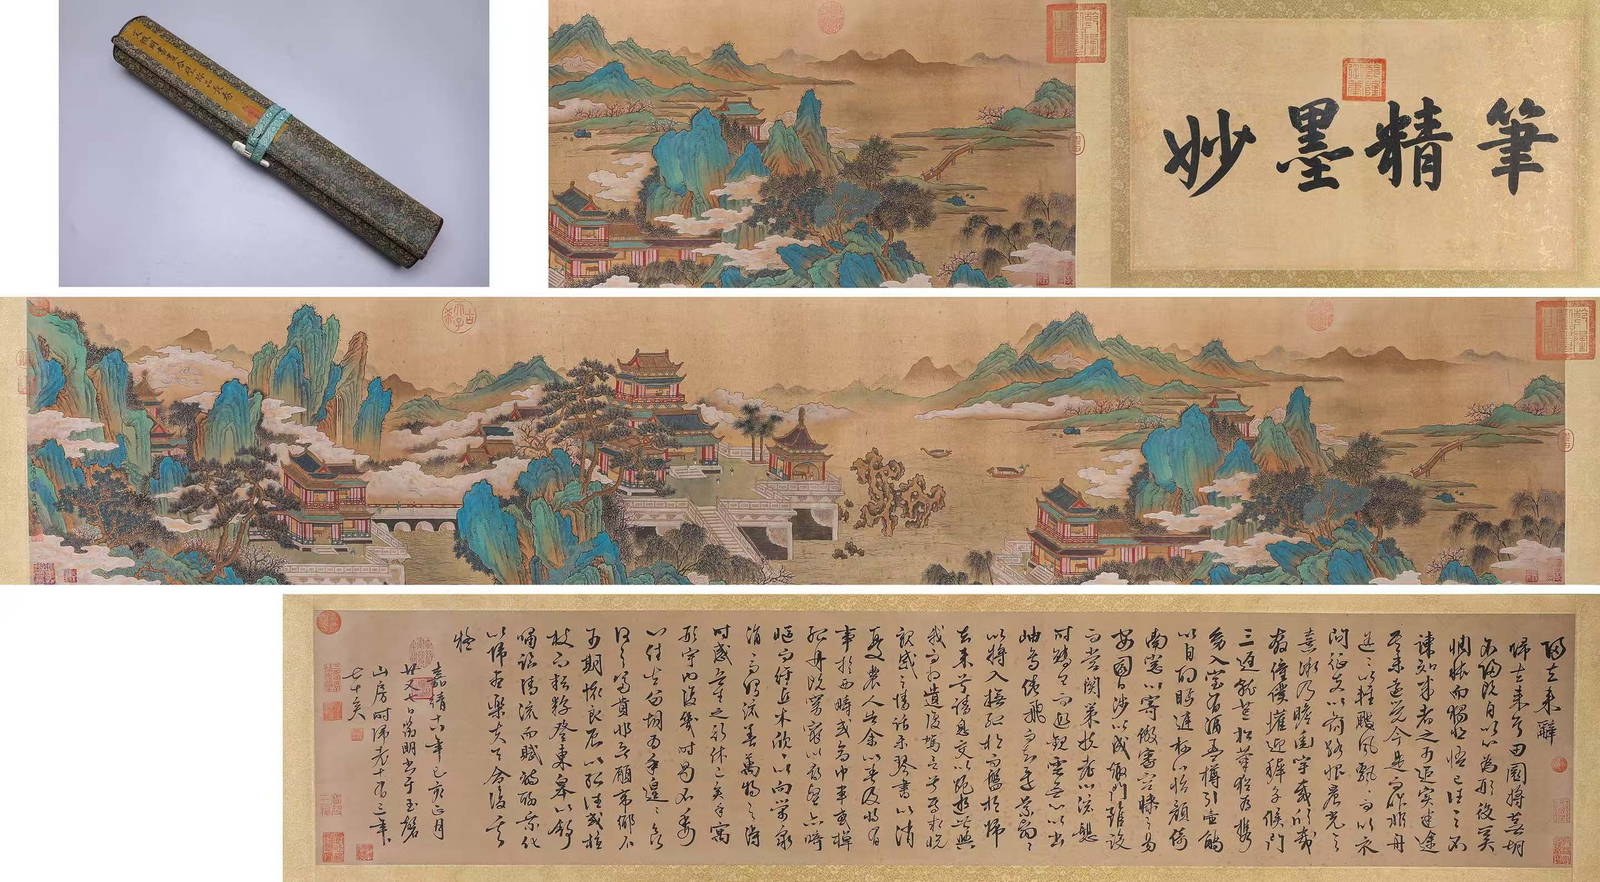 文徵明書畫合璧珍品長卷
筆精墨妙
歸去來辭
歸去來兮田園將蕪胡
不歸既自以心為形役奚
惆悵而獨悲悟已往之不
諫知來者之可追實迷途
其未遠覺今是而昨非舟
遙遙以輕颺風飄飄而吹衣
問征夫以前路恨晨光之
熹微乃瞻衡宇載欣載
奔僮僕歡迎稚子候門
三逕就荒松菊猶存攜
幼入室有酒盈樽引壺觴
以自酌眄庭柯以怡顏倚
南窗以寄傲審容膝之易
安園日涉以成趣門雖設
而常關策扶老以流憩
時矯首而遐觀雲無心以出
岫鳥倦飛而知還景翳翳
以將入撫孤松而盤桓歸
去來兮請息交以絕遊世與
我而相遺復駕言兮焉求悅
親戚之情話樂琴書以消
憂農人告余以春及將有
事於西疇或命巾車或棹
孤舟既窈窕以尋壑亦崎
嶇而經丘木欣欣以向榮泉
涓涓而始流善萬物之得
時感吾生之行休已矣乎寓
形宇內復幾時曷不委
心任去留胡為乎遑遑欲
何之富貴非吾願帝鄉不
可期懷良辰以孤往或植
杖而耘耔登東皋以舒
嘯臨清流而賦詩聊乘化
以歸盡樂夫天命復奚
疑
嘉靖十八年己亥正月
廿又七日徵明書于玉磬
山房時歸老十有三年
七十矣